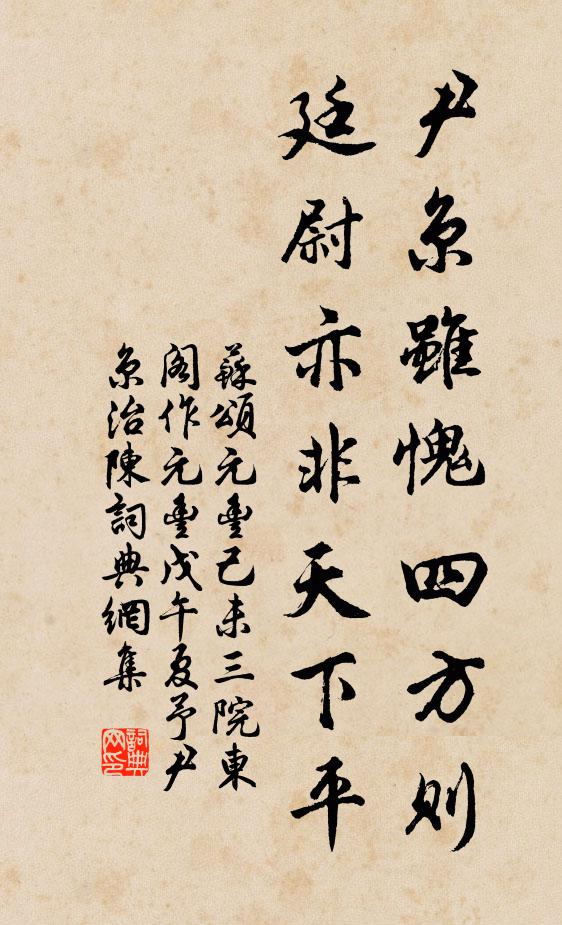 尹京雖愧四方則
廷尉亦非天下平
蘇頌元豐己未三院東
閣作元豐戊午夏予尹
京治陳詞典網集
詞典
网印